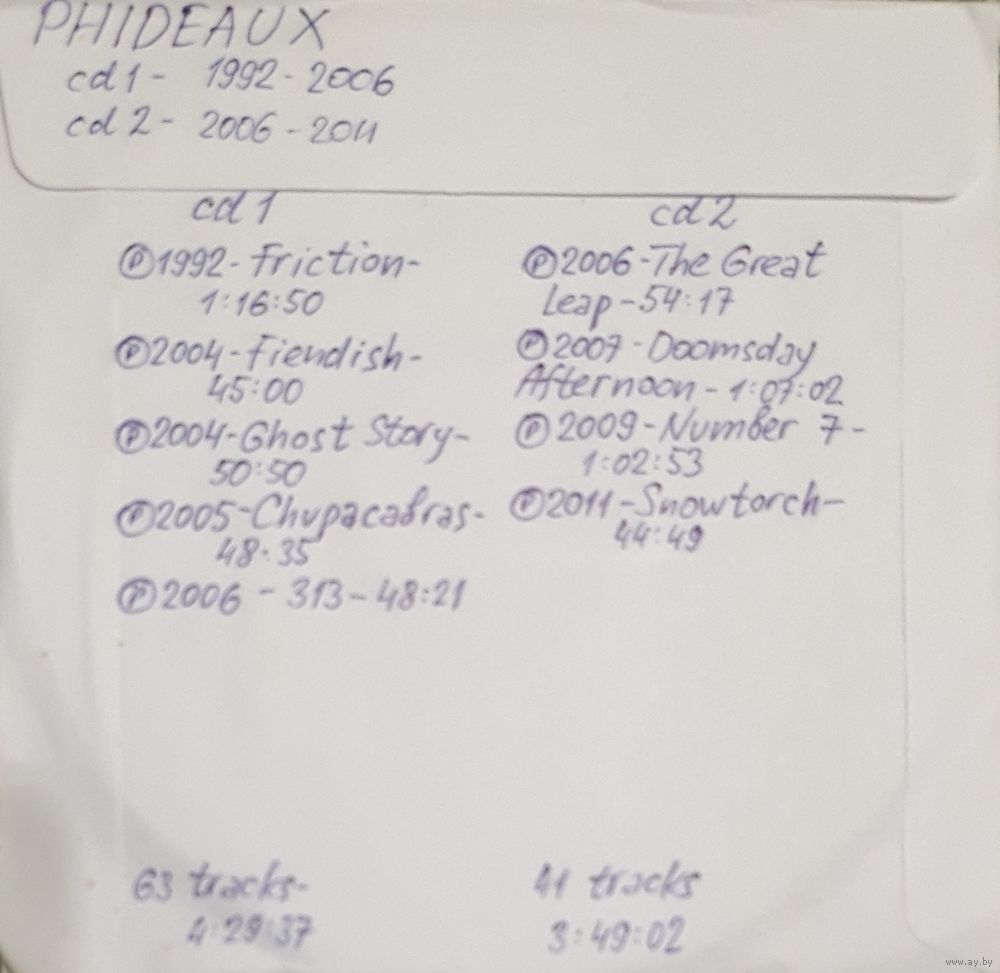 PHIDEAUX
cd 1 - 1992 - 2006
cd 2 - 2006 - 2011
cd 1
Ⓟ1992 - Friction -
1:16:50
Ⓟ2004 - Fiendish -
45:00
Ⓟ2004 - Ghost Story -
50:50
Ⓟ2005 - Chupacabras -
48:35
Ⓟ2006 - 313 - 48:21
63 tracks -
4:29:37
cd 2
Ⓟ2006 - The Great
Leap - 54:17
Ⓟ2007 - Doomsday
Afternoon - 1:07:02
Ⓟ2009 - Number 7 -
1:02:53
Ⓟ2011 - Snowtorch -
44:49
41 tracks
3:49:02
www.ay.by